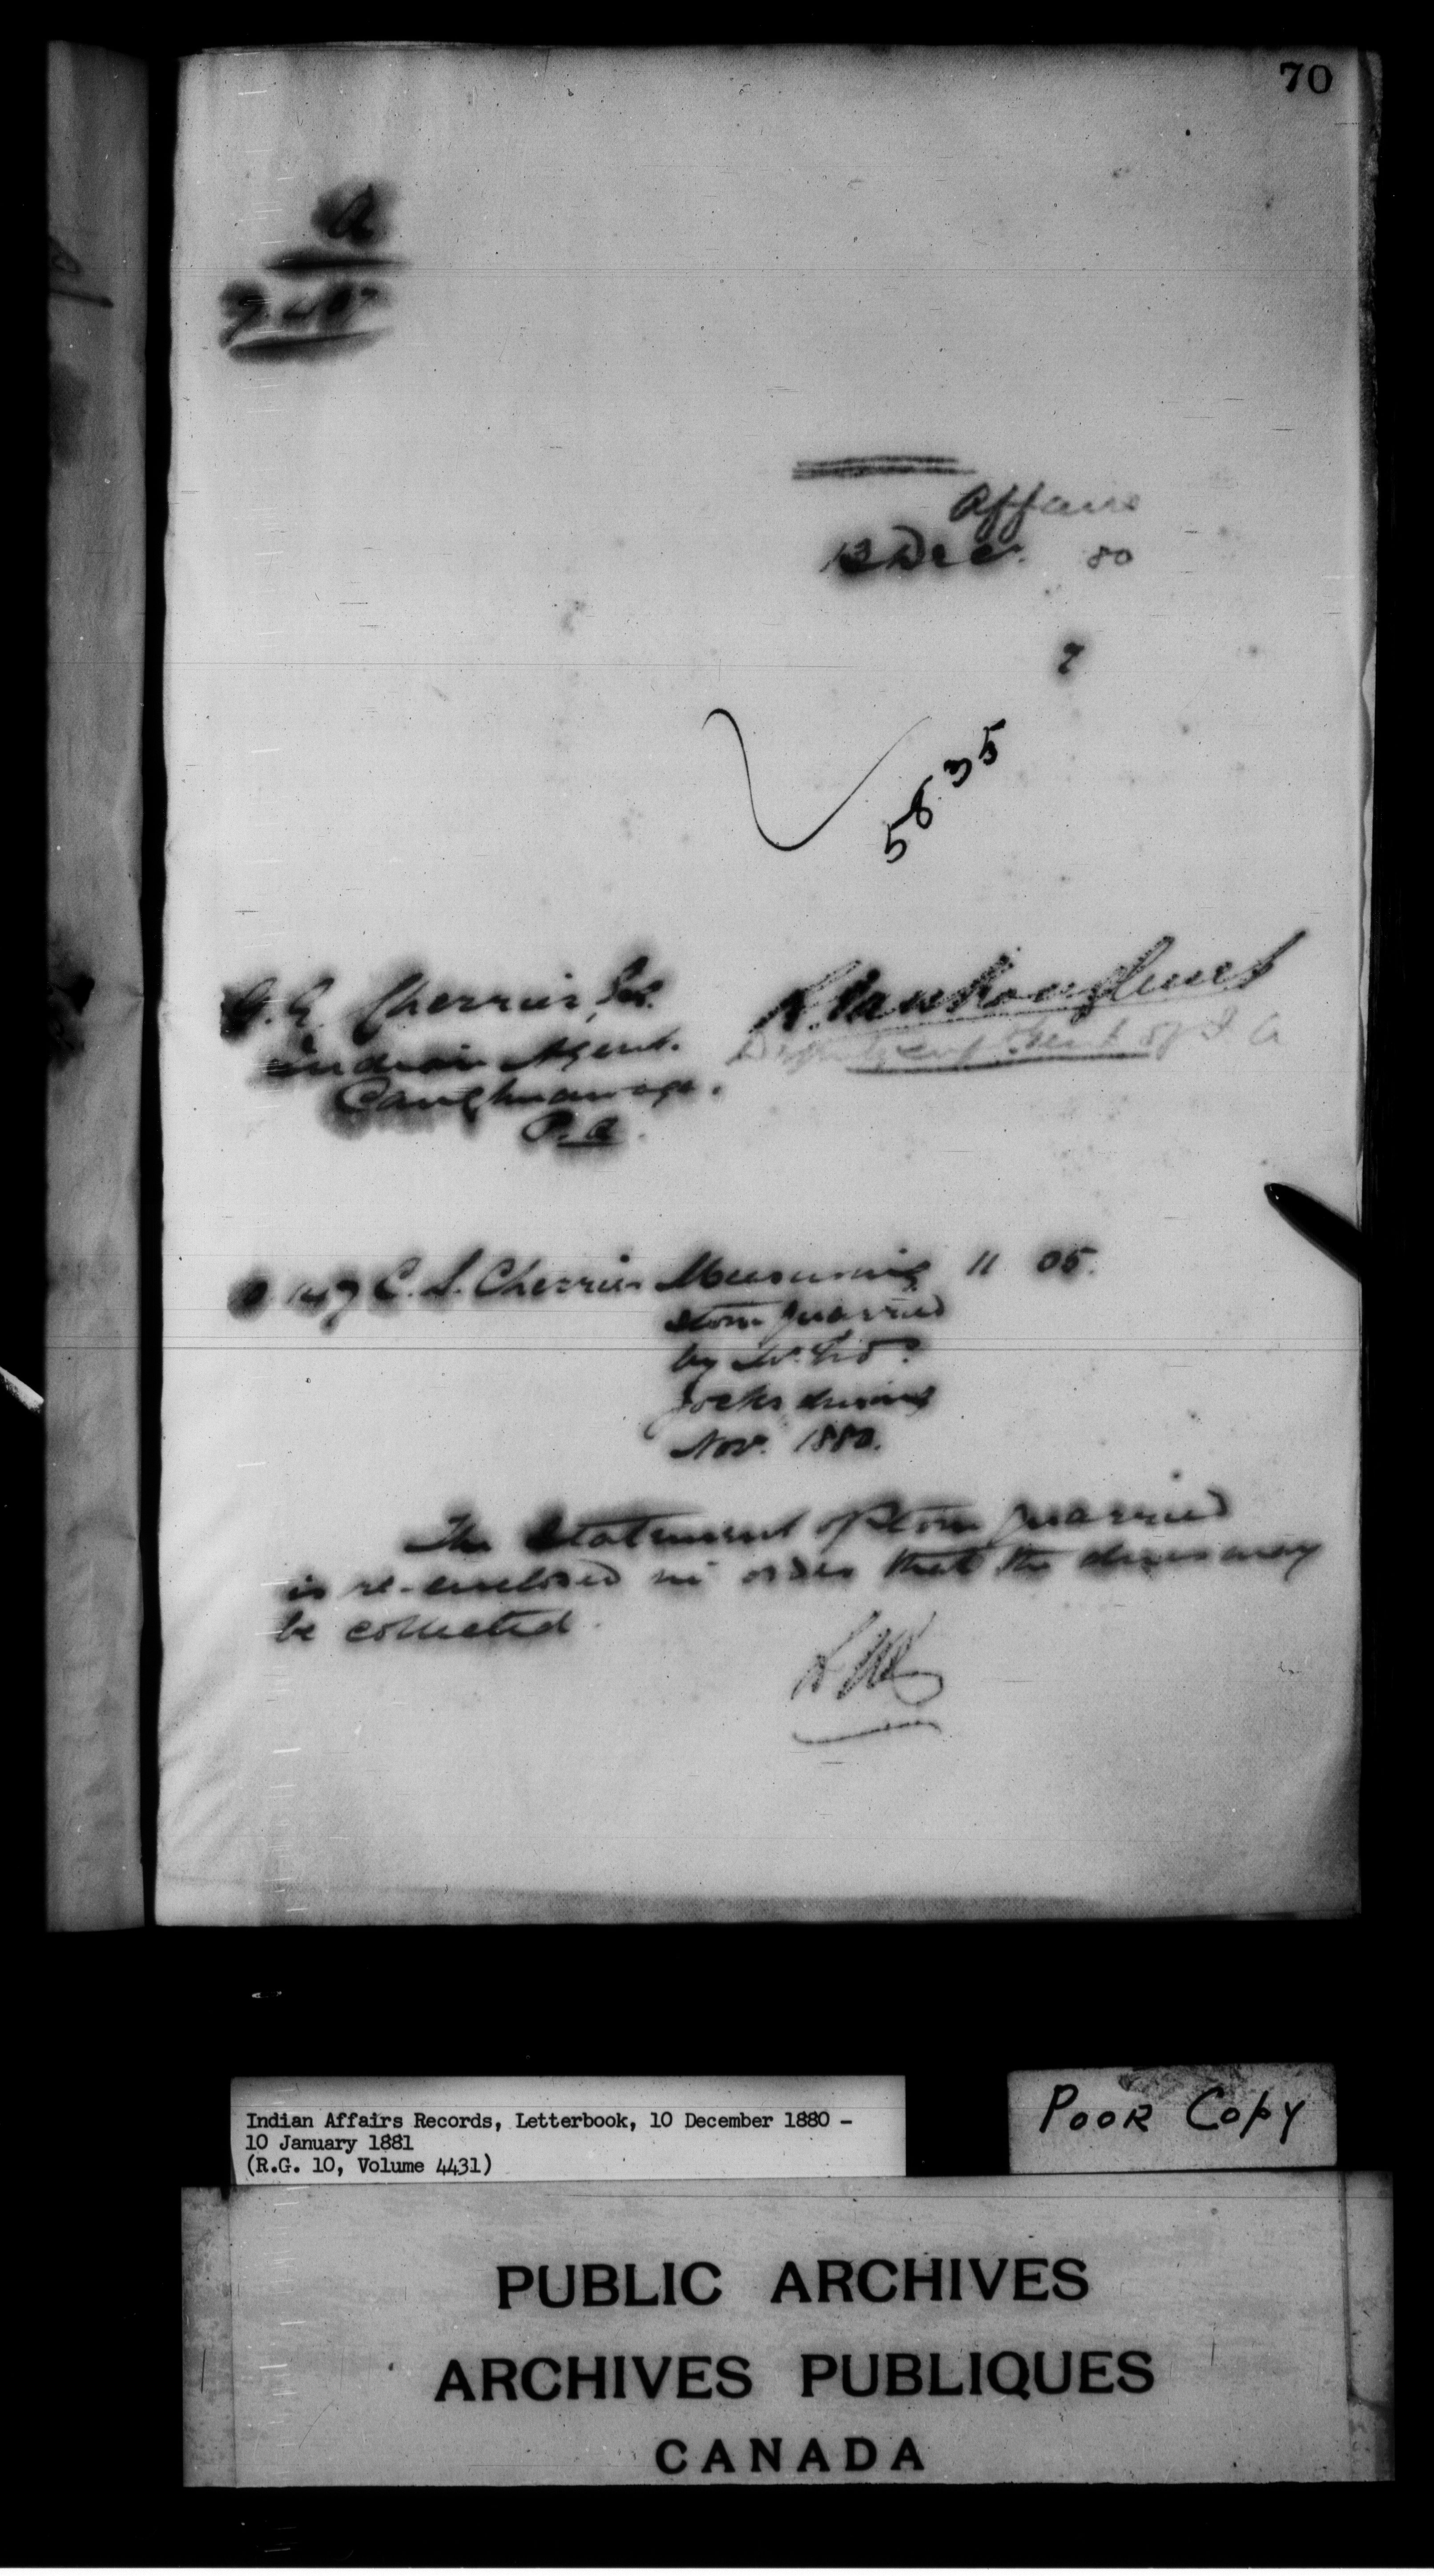 70
A
Affairs
13 Dec. 80
7
5635
G. E. Cherrier, Esq.
Indian Agent.
Caughnawaga.
P.Q.
L. Vankoughnet
Deputy Supt. Genl. of I. A
C. S. Cherrier Measuring 11 05.
stone quarried
by
Jocks during
Nov. 1880.
The Statement of Stone quarried
is re-enclosed in order that the dues may
be collected
L.V.
Indian Affairs Records, Letterbook, 10 December 1880 -
10 January 1881
(R.G. 10, Volume 4431)
POOR COPY
PUBLIC ARCHIVES
ARCHIVES PUBLIQUES
CANADA